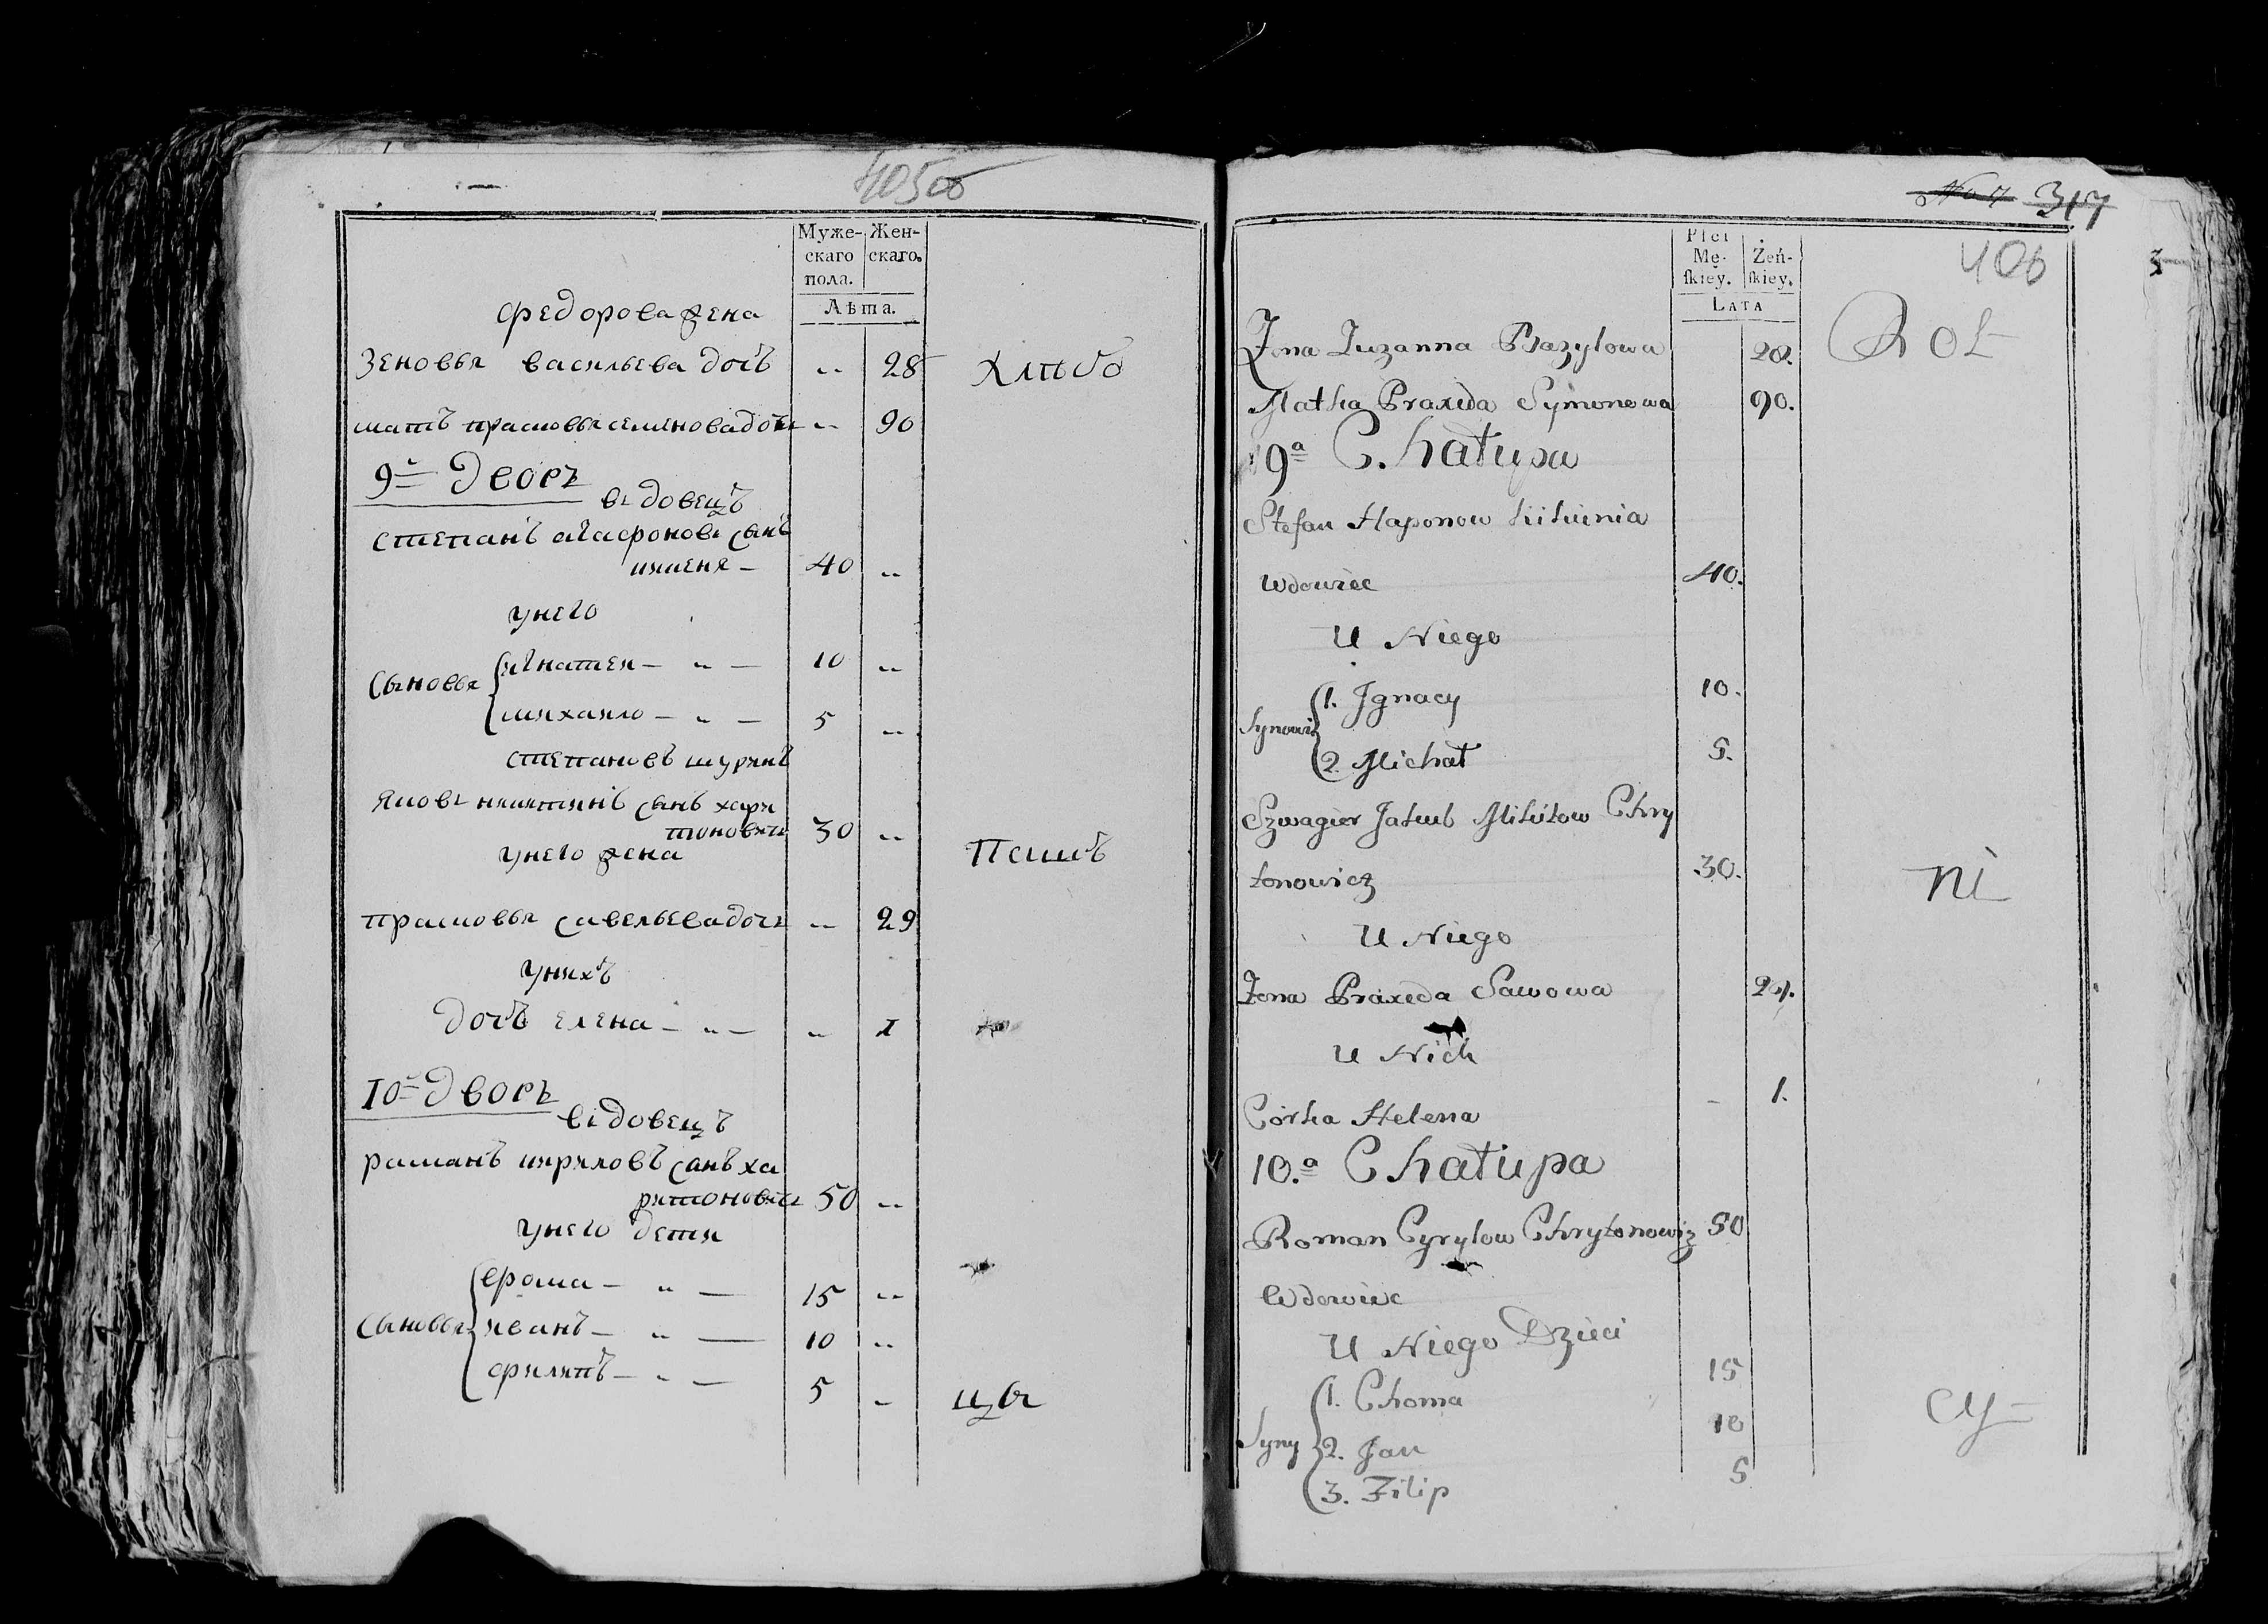 405об
Муже-
скаго
пола.
Жен-
скаго.
Лѣта.
Федорова жена
Зеновья васильева дочь „ 28
Хлѣбо
мать прасковья семенова дочь „ 90
9й Дворъ
вдовецъ
Степанъ агафоновъ сынъ
40 „
у него
Сыновья
игнатеи — „ — 10 „
михаило — „ — 5 „
степановъ шуринъ
Яковъ никитинъ сынъ хари
тоновичь 30 „
у него жена
Пашъ
прасковья савельева дочь „ 29
у нихъ
дочь елена — „ — „ 1
10й Дворъ
вдовецъ
раманъ кириловъ сынъ ха
ритоновичь 50 „
у него дети
Сыновья
ерома — „ — 15 „
иванъ — „ — 10 „
филипъ — „ — 5 „
цы
No 7 317
406
Płci
Mę-
ſkiey.
Żeń-
ſkiey.
LATA
Żona Zuzanna Bazylowa 28.
Rol
Matka Praxeda Symonowa 90.
9a Chałupa
Stefan Haponow
Wdowiec 40.
U Niego
Synowie
1. Jgnacy 10.
2. Michał 5.
Szwagier Jakub Mikitow Chry
tonowicz 30.
ni
U Niego
Żona Praxeda Sawowa 29.
U Nich
Córka Helena - 1.
10.a Chałupa
Roman Cyrylow Chrytonowicz 50
Wdowiec
U Niego Dzieci
Syny
1. Choma 15
2. Jan 10
3. Filip 5
cy